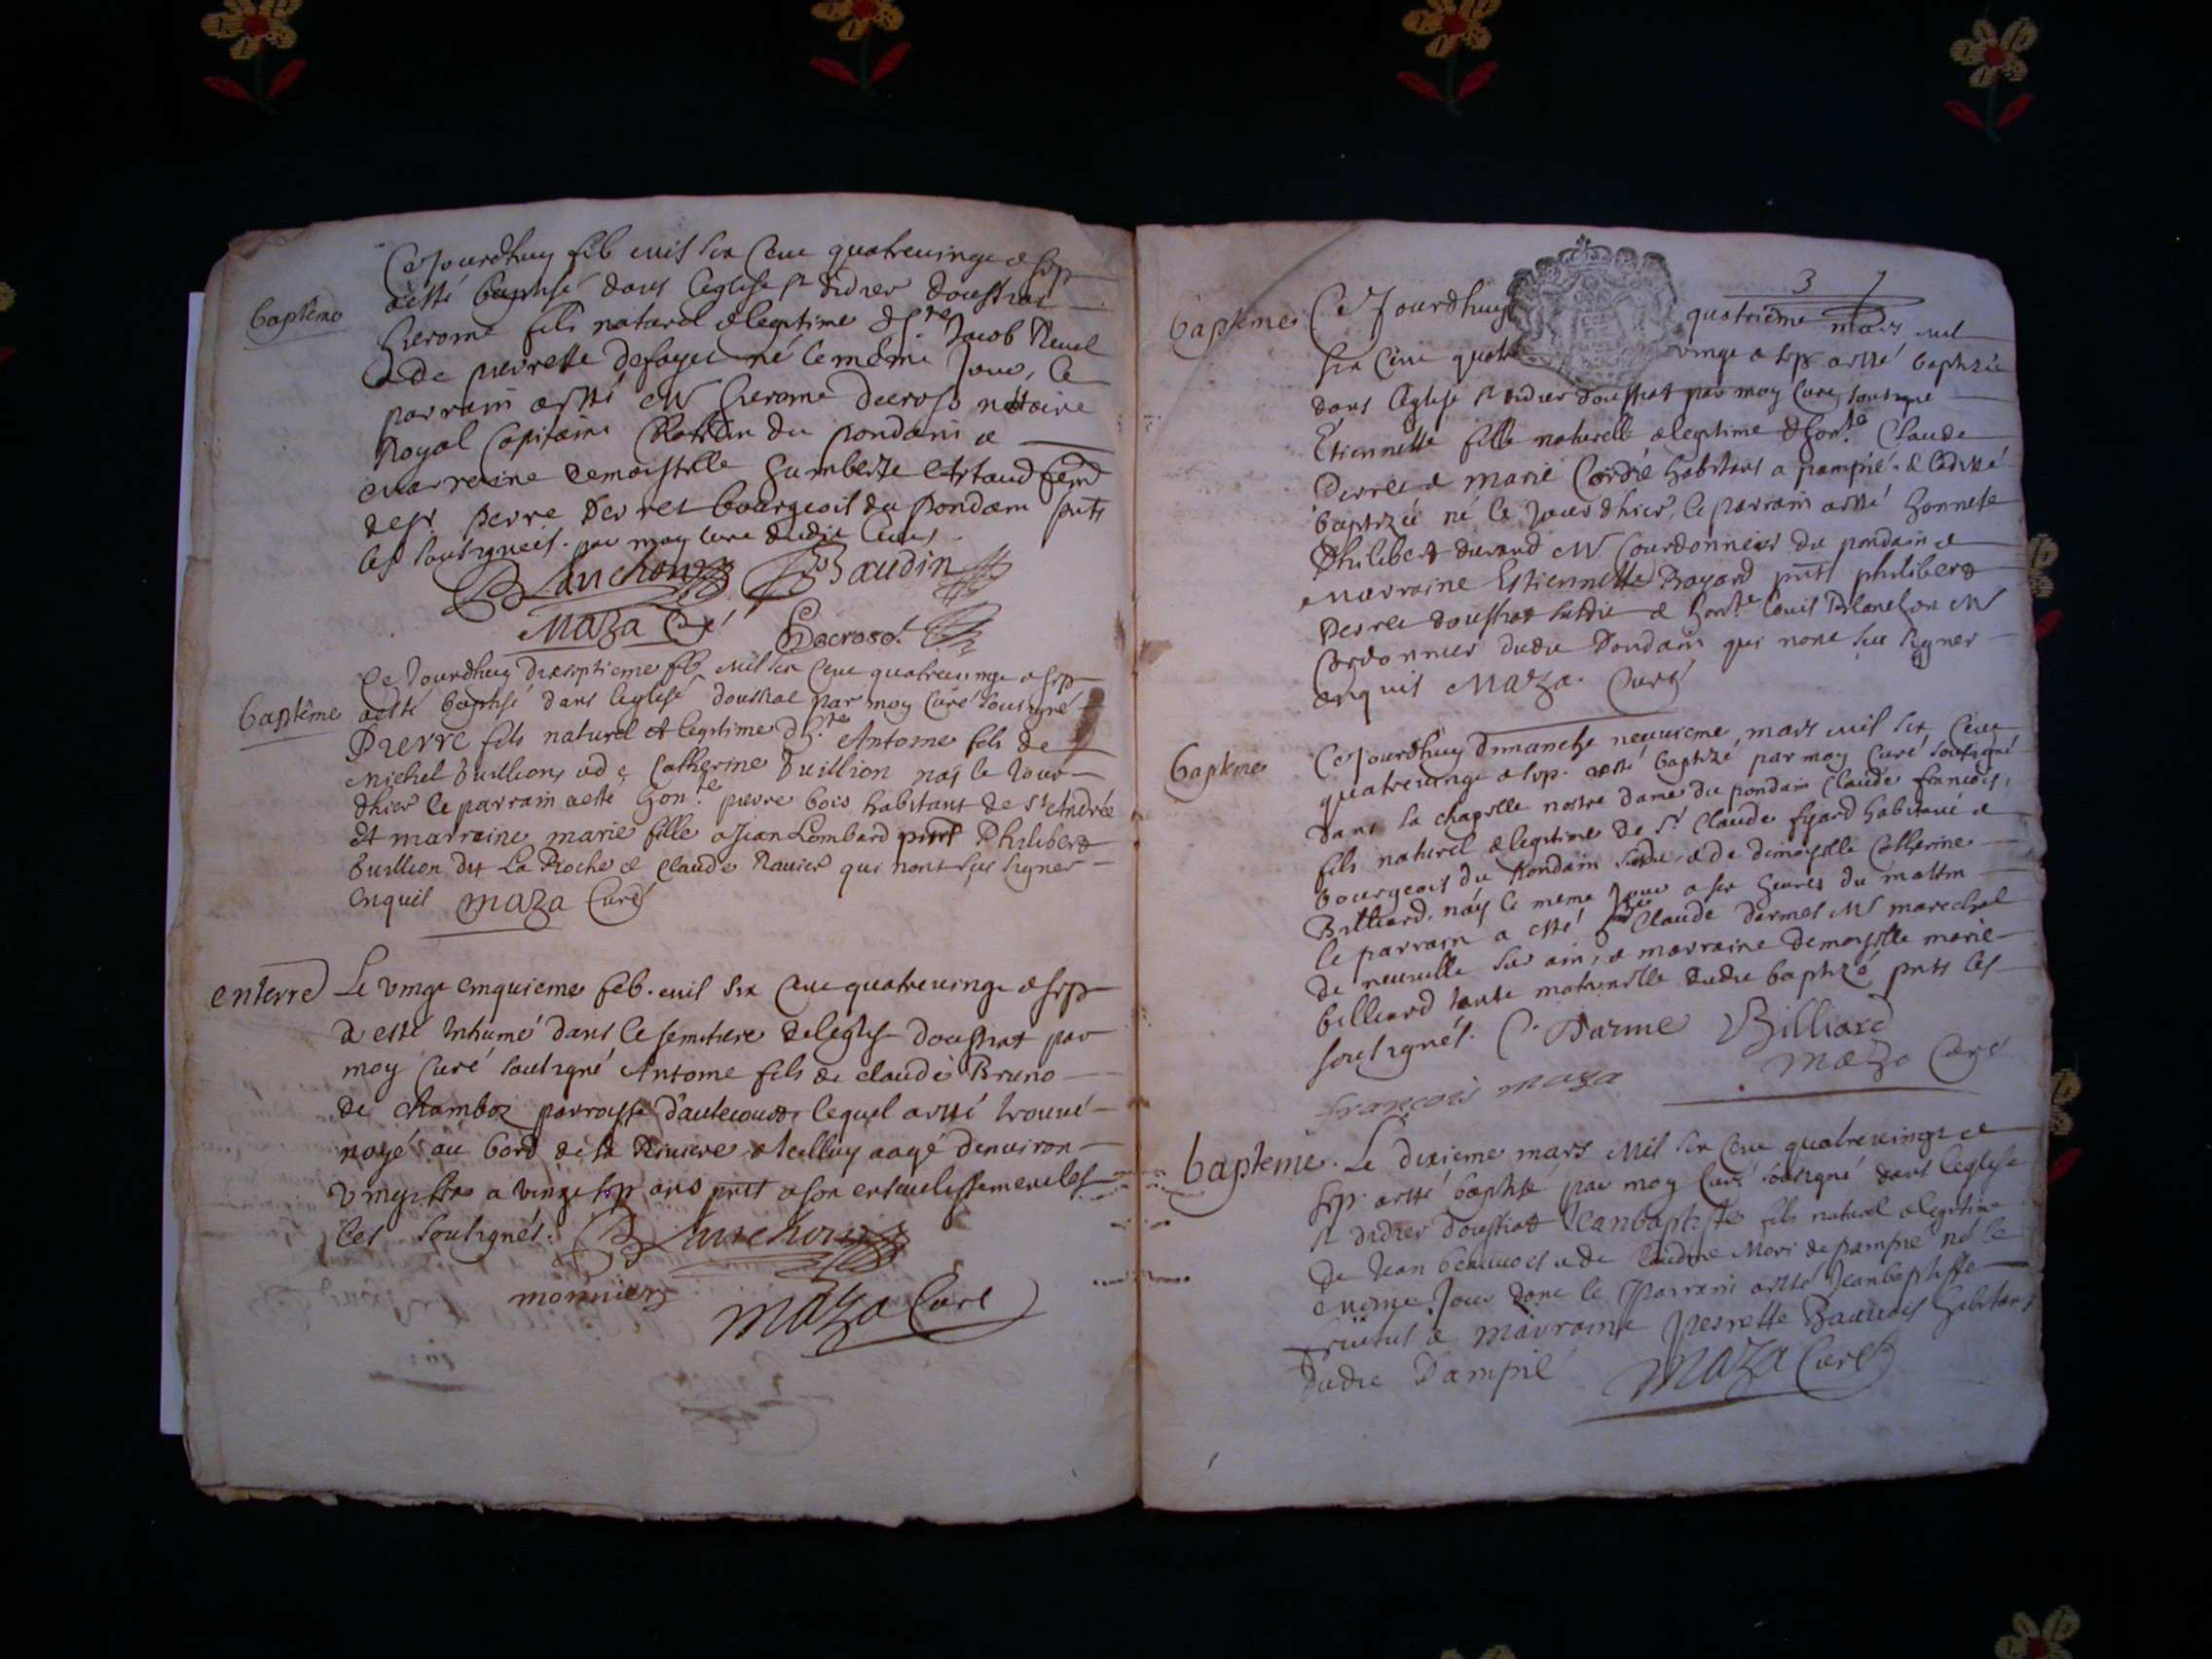 baptême
Cejourdhuy feb mil six cent quatrevingt et sept
a esté baptisé dans leglise St didier doussiat
hierome fils naturel et legitime d hre Jacob Revel
et de pierrette defayet né le même Jour, le
parrain a esté Mr hierome decroso notaire
Royal Capitaine Chatelain du pondain et
marraine demoiselle humberte Artaud feme
de Sr pierre perret bourgeois du pondain pnts
les soubsignés. par moy cure dudit lieu
Blanchon Baudin
Maza Curé Decroso
baptême
Ce Jourdhuy dixseptieme feb mil six cent quatrevingt et sept
a esté baptisé dans leglise doussiat par moy Curé soubsigné
Pierre fils naturel et legitime d h.te Antoine fils de
michel Vuillion, et de Catherine Vuillion nay le Jour
dhier le parrain a esté hon.te pierre bois habitant de St Andrée
et marraine marie fille a Jean Lombard pnts Philibert
Vuillion dit La Roche et claude Ravier qui nont sçu signer
enquis maza Curé
enterré
Le vingt cinquieme feb. mil six cent quatrevingt et sept
a esté Inhumé dans le semitiere de leglise doussiat par
moy Curé soubsigné Antoine fils de claude Bruno
de chamboz parroisse d'autecourt lequel a esté trouvé
noyé au bord de la Riviere agé denviron
vingt six a vingt sept ans pnts a son ensevelissement les
les soubsignés. Blanchon
monnier
maza Curé
3
baptême
Ce Jourdhuy quatrieme mars mil
six cent quatre vingt et sept a esté baptizée
dans leglise St didier doussiat par moy Curé soubsigné
Etiennette fille naturelle et legitime d hon.te Claude
perret et marie Cordié habitans a pampié. et ladite
baptizée né le Jour dhier, le parrain a esté honnete
Philibert durand Mr Courdonnier du pondain et
marraine Estiennette Bayard pnts philibert
perret doussiat susdit et hon.te Louis Blanchon Mr
Cordonnier dudit Pondain qui nont sçu signer
enquis Maza. Curé
baptême
Cejourdhuy dimanche neuvieme mars mil six cent
quatrevingt et sept. a esté baptizé par moy Curé soubsigné
dans la chapelle nostre dame du pondain Claude francois,
fils naturel et legitime de Sr Claude figard habitant et
bourgeois du Pondain susdit, et de demoyselle Catherine
Billiard, nay le meme Jour a six heures du mattin
le parrain a esté Claude darmes Mr marechal
de neuville sur ain, et marraine demoyselle marie
billiard tante maternelle dudit baptizé pnts les
soubsignés. C. Darme Billiard
françois maza maza Curé
baptême.
Le dixieme mars Mil six cent quatrevingt et
sept a esté baptisé par moy Curé soubsigné dans leglise
St didier doussiat Jeanbaptiste fils naturel et legitime
de Jean beauvois et de Claudine Mori de pampié né le
meme Jour dont le Parrain a esté Jeanbaptiste
et marraine pierrette Bauvois habitans
dudit Pampié maza Curé